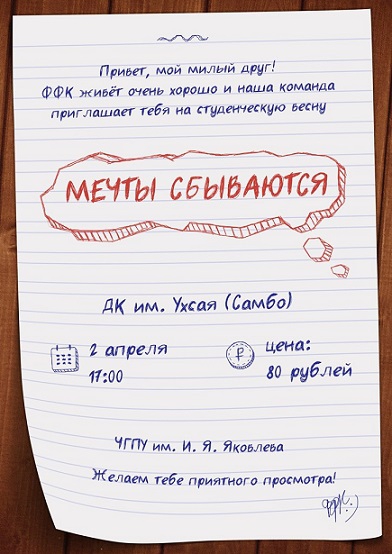 Привет, мой милый друг!
ФФК живёт очень хорошо и наша команда
приглашает тебя на студенческую весну
МЕЧТЫ СБЫВАЮТСЯ
ДК им. Ухсая (Самбо)
2 апреля
17:00
цена:
80 рублей
ЧГПУ им. И. Я. Яковлева
Желаем тебе приятного просмотра!
ФФК:)